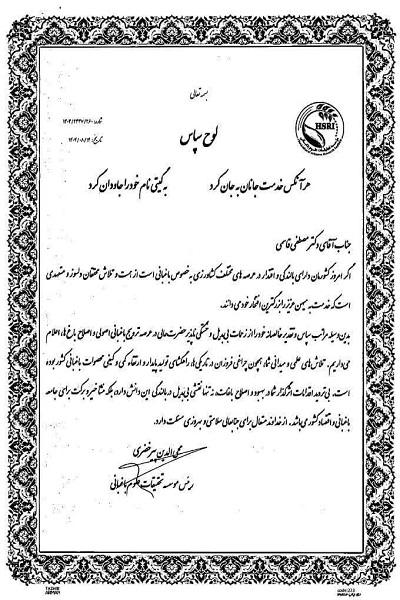 بسمه تعالی
HSRI
شماره: ۲۶۰/۲۴۳۷/۱۴۰۲
تاریخ: ۱۴۰۲/۰۸/۱۴
لوح سپاس
هر آنکس خدمت جانان به جان کرد به گیتی نام خود را جاودان کرد
جناب آقای دکتر مصطفی قاسمی
اگر امروز کشورمان دارای بالندگی و اقتدار در عرصه های مختلف کشاورزی به خصوص باغبانی است از همت و تلاش محققان دلسوز و متعهدی
است که خدمت به میهن عزیز را بزرگترین افتخار خود می دانند.
بدین وسیله مراتب سپاس و تقدیر خالصانه خود را از زحمات بی بدیل و خستگی ناپذیر حضرتعالی در عرصه ترویج باغبانی اصولی و اصلاح باغ ها، اعلام
می داریم. تلاش های علمی و میدانی شما، همچون چراغی فروزان در تاریکی ها، راهگشای تولید پایدار و ارتقاء کمی و کیفی محصولات باغبانی کشور بوده
است. بی تردید اقدامات اثرگذار شما در بهبود و اصلاح باغات، نه تنها نقشی بی بدیل در بالندگی این دانش دارد، بلکه منشا خیر و برکت برای جامعه
باغبانی و اقتصاد کشور می باشد. از خداوند متعال برای جنابعالی سلامتی و بهروزی مسئلت دارد.
محی الدین پیرخضری
رئیس موسسه تحقیقات علوم باغبانی